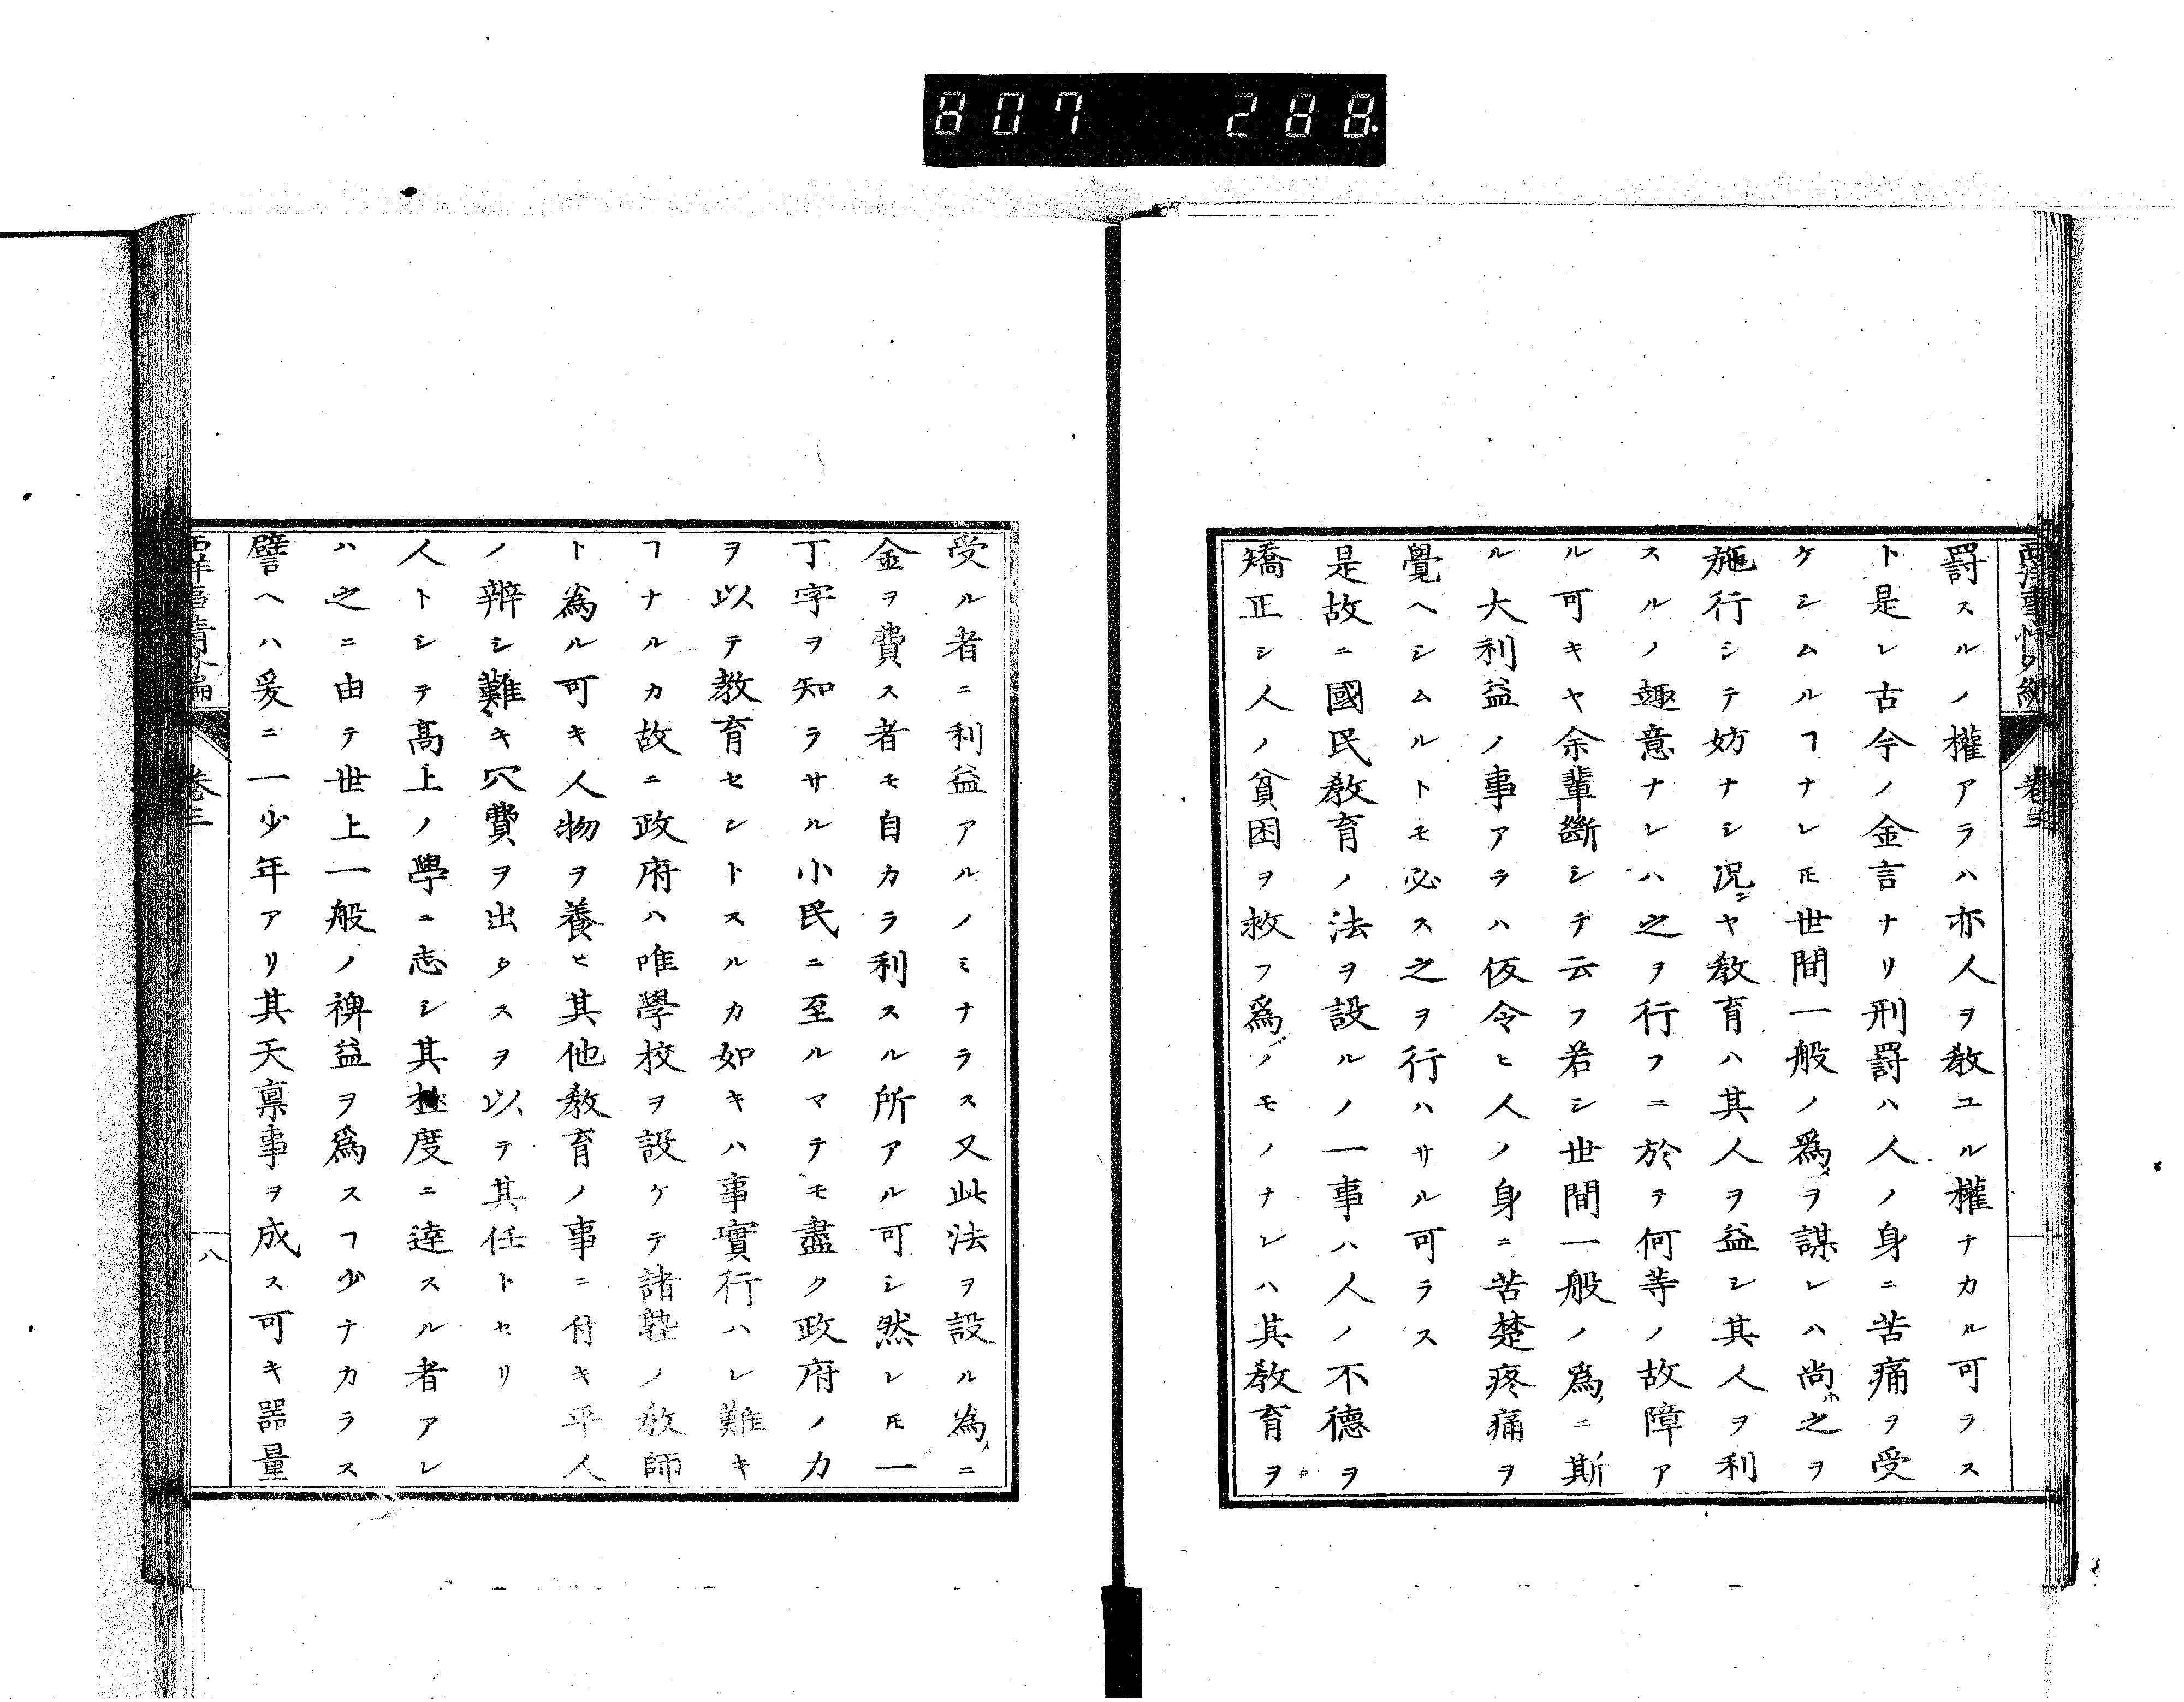 807 288.
西洋事情外編 卷三
罸スルノ權アラハ亦人ヲ敎ユル權ナカル可ラス
ト是レ古今ノ金言ナリ刑罸ハ人ノ身ニ苦痛ヲ受
ケシムルヿナレ𪜈世間一般ノ爲メヲ謀レハ尚ホ之ヲ
施行シテ妨ナシ况ンヤ敎育ハ其人ヲ益シ其人ヲ利
スルノ趣意ナレハ之ヲ行フニ於テ何等ノ故障ア
ル可キヤ余輩斷シテ云フ若シ世間一般ノ爲メニ斯
ル大利益ノ事アラハ仮令ヒ人ノ身ニ苦楚疼痛ヲ
覺ヘシムルトモ必ス之ヲ行ハサル可ラス
是故ニ國民敎育ノ法ヲ設ルノ一事ハ人ノ不德ヲ
矯正シ人ノ貧困ヲ救フ爲メノモノナレハ其敎育ヲ
受ル者ニ利益アルノミナラス又此法ヲ設ル為メニ
金ヲ費ス者モ自カラ利スル所アル可シ然レ𪜈一
丁字ヲ知ラサル小民ニ至ルマテモ盡ク政府ノ力
ヲ以テ教育セントスルカ如キハ事實行ハレ難キ
ヿナルカ故ニ政府ハ唯學校ヲ設ケテ諸塾ノ敎師
ト為ル可キ人物ヲ養ヒ其他敎育ノ事ニ付キ平人
ノ辨シ難キ冗費ヲ出タスヲ以テ其任トセリ
人トシテ髙上ノ學ニ志シ其極度ニ達スル者アレ
ハ之ニ由テ世上一般ノ裨益ヲ爲スヿ少ナカラス
譬ヘハ爰ニ一少年アリ其天禀事ヲ成ス可キ器量
西洋事情外編 卷三 八